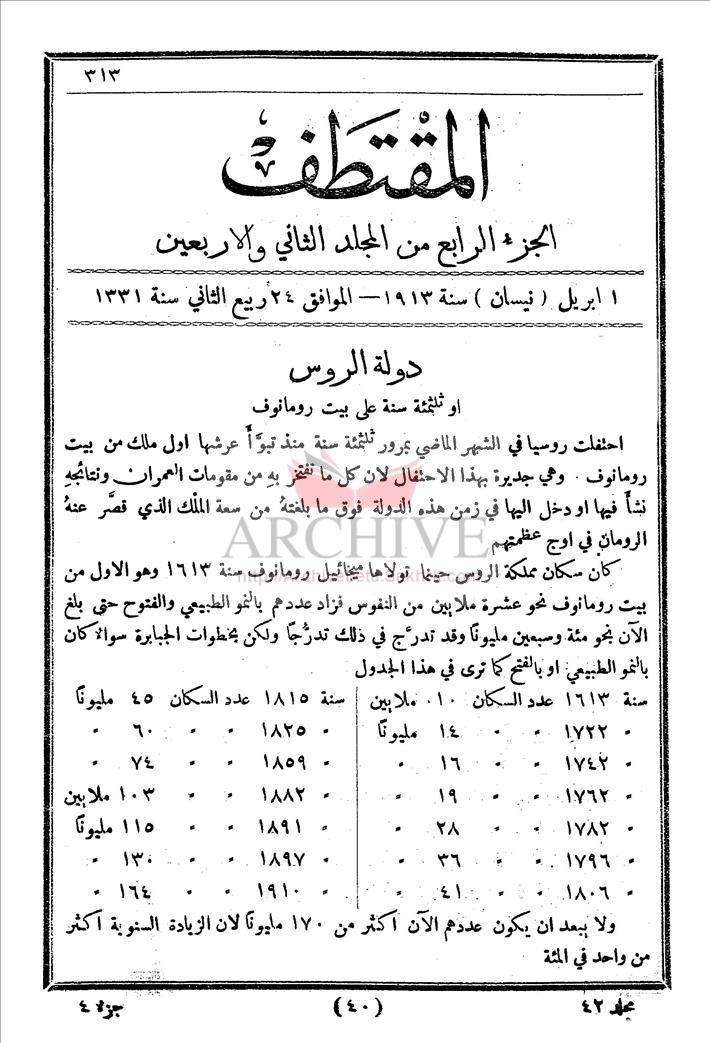 ٣١٣
المقتطف
الجزء الرابع من المجلد الثاني والاربعين
١ ابريل ( نيسان ) سنة ١٩١٣ — الموافق ٢٤ ربيع الثاني سنة ١٣٣١
دولة الروس
او ثلثمئة سنة على بيت رومانوف
احتفلت روسيا في الشهر الماضي بمرور ثلثمئة سنة منذ تبوَّأَ عرشها اول ملك من بيت
رومانوف . وهي جديرة بهذا الاحتفال لان كل ما تفتخر بهِ من مقومات العمران ونتائجهِ
نشأَ فيها او دخل اليها في زمن هذه الدولة فوق ما بلغتهُ من سعة الملك الذي قصَّر عنهُ
الرومان في اوج عظمتهم
ARCHIVE
كان سكان مملكة الروس حينما تولاها ميخائيل رومانوف سنة ١٦١٣ وهو الاول من
بيت رومانوف نحو عشرة ملايين من النفوس فزاد عددهم بالنمو الطبيعي والفتوح حتى بلغ
الآن نحو مئة وسبعين مليونًا وقد تدرَّج في ذلك تدرُّجًا ولكن بخطوات الجبابرة سوالا كان
بالنمو الطبيعي او بالفتح كما ترى في هذا الجدول
سنة ١٦١٣ عدد السكان ١٠ ملايين سنة ١٨١٥ عدد السكان ٤٥ مليونًا
" ١٧٢٢ " " ١٤ مليونًا " ١٨٢٥ " " ٦٠ "
" ١٧٤٢ " " ١٦ " " ١٨٥٩ " " ٧٤ "
" ١٧٦٢ " " ١٩ " " ١٨٨٢ " " ١٠٣ ملايين
" ١٧٨٢ " " ٢٨ " " ١٨٩١ " " ١١٥ مليونًا
" ١٧٩٦ " " ٣٦ " " ١٨٩٧ " " ١٣٠ "
" ١٨٠٦ " " ٤١ " " ١٩١٠ " " ١٦٤ "
ولا يبعد ان يكون عددهم الآن اكثر من ١٧٠ مليونًا لان الزيادة السنوية اكثر
من واحد في المئة
مجلد ٤٢ (٤٠) جزء ٤